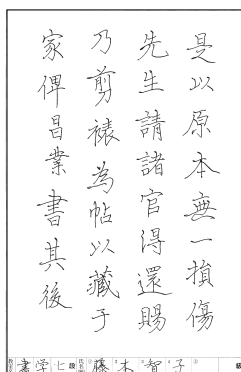 是以原本無一損傷
先生請諸官得還賜
乃剪裱為帖以藏于
家俾昌業書其後
書学 七 段 氏名 藤木智子